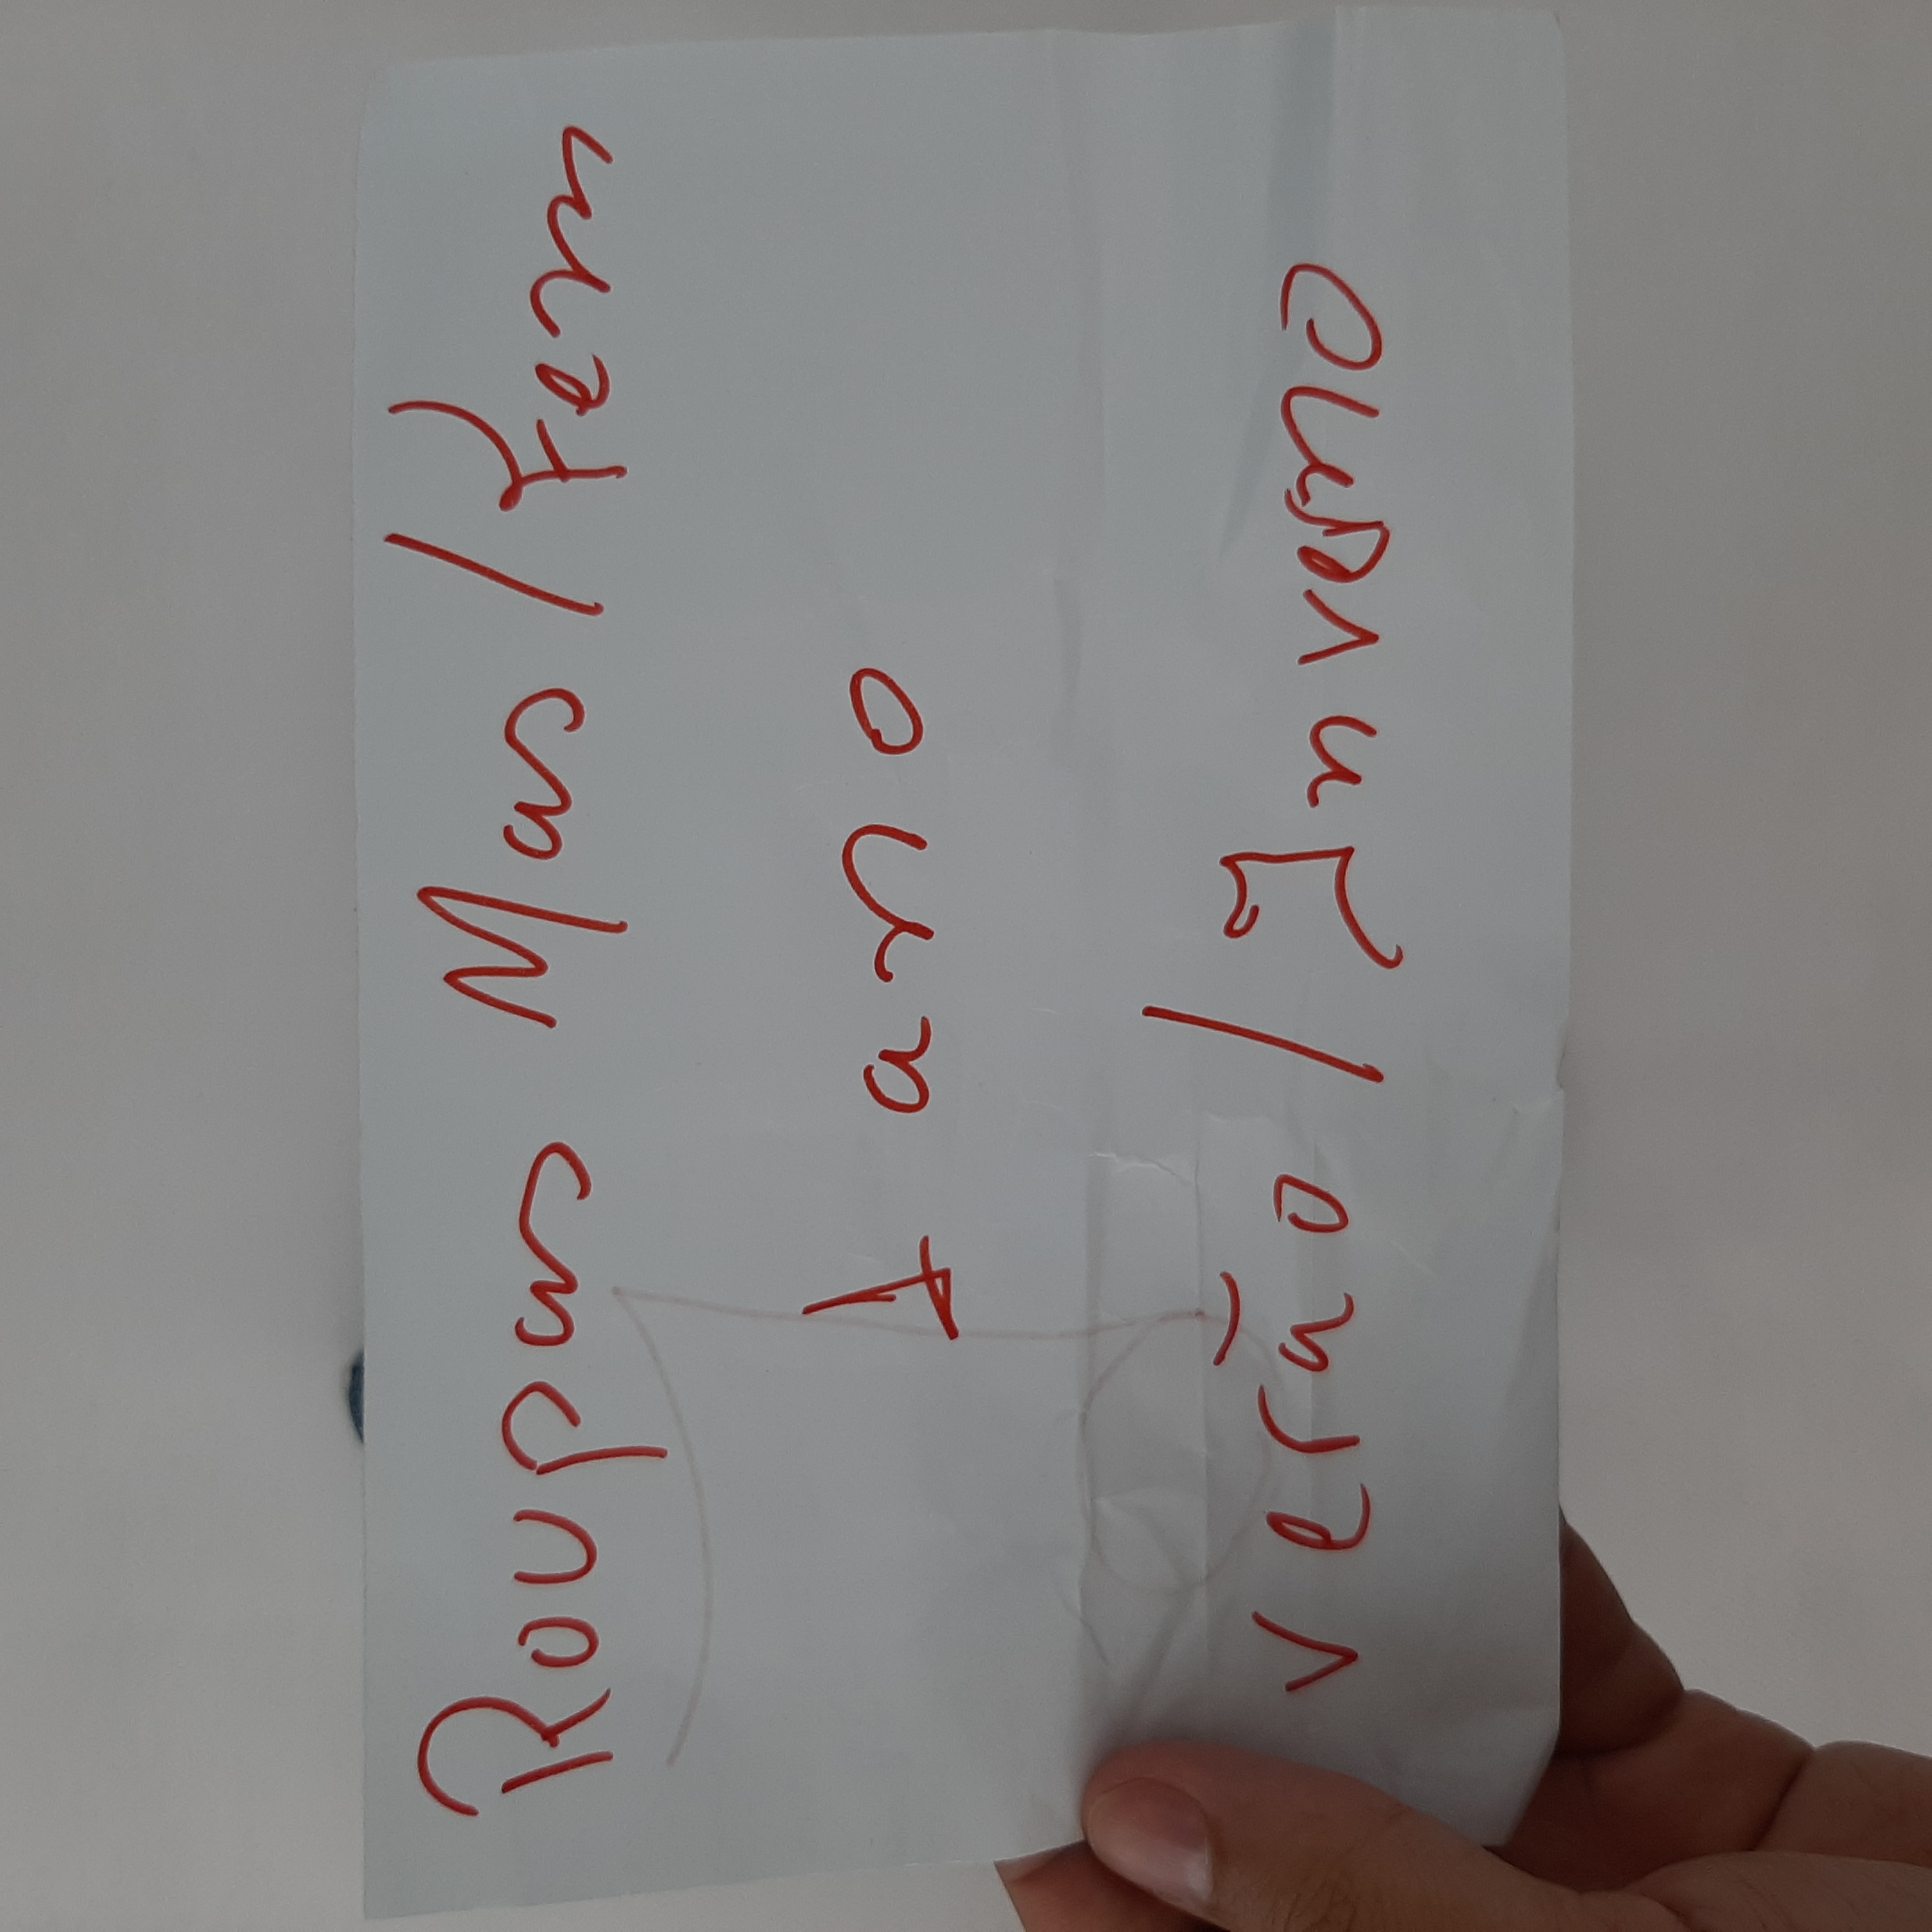 Roupas Mas/Fem
1 ano
verão/Inverno